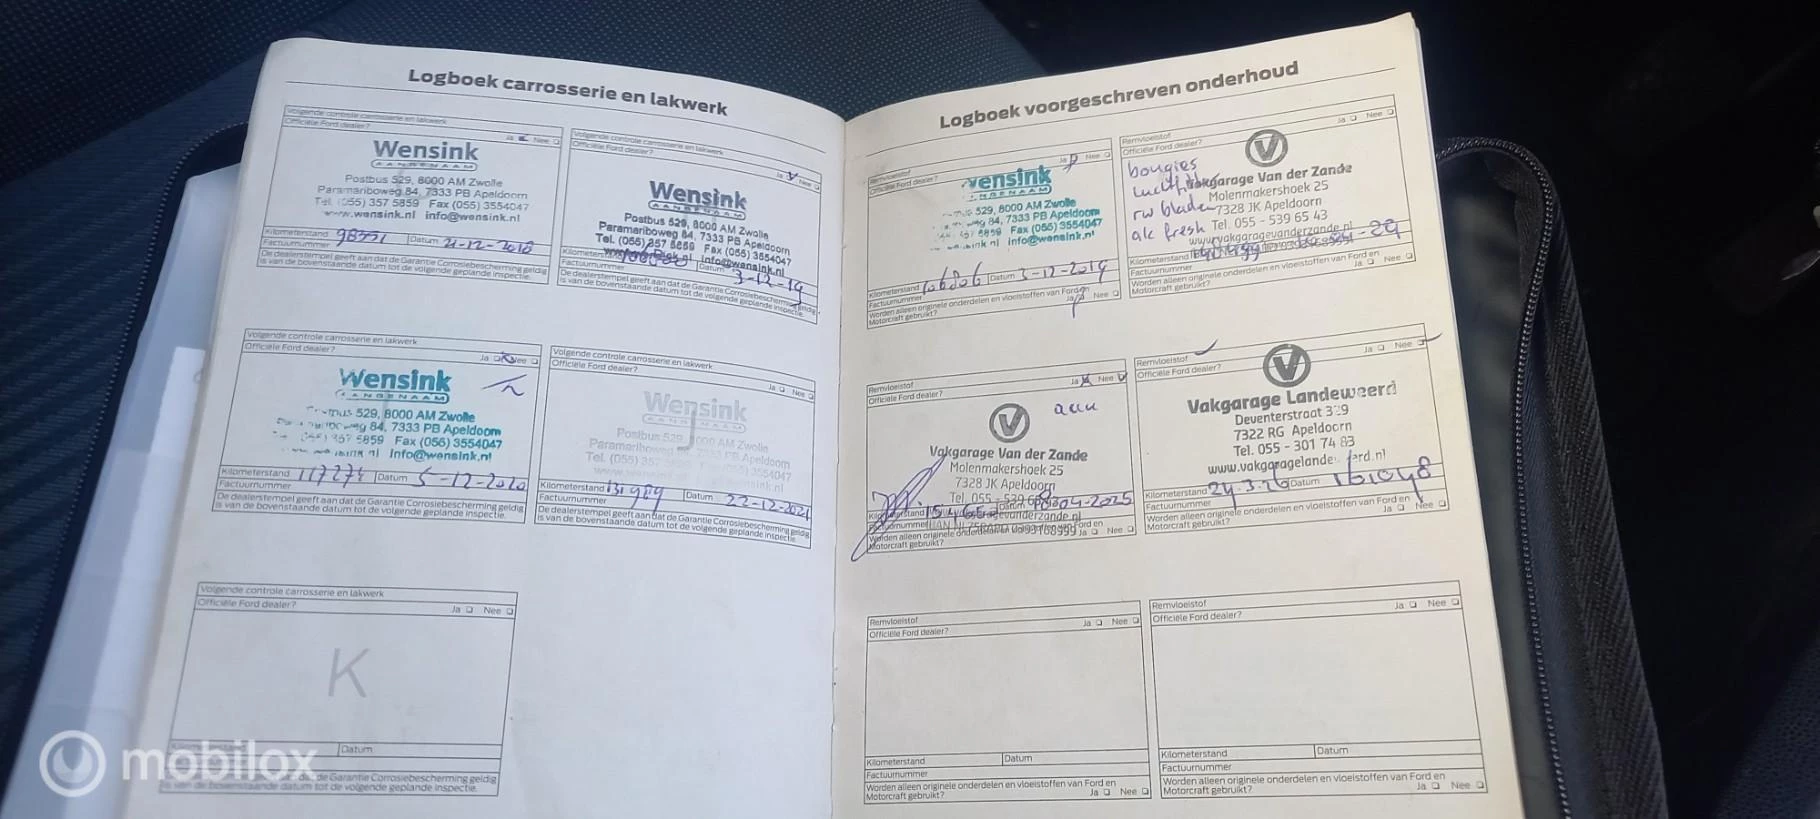 Logboek carrosserie en lakwerk
Volgende controle carrosserie en lakwerk
Officiële Ford dealer?
Ja Nee
Wensink
AANGENAAM
Postbus 529, 8000 AM Zwolle
Paramariboweg 84, 7333 PB Apeldoorn
Tel. (055) 357 5859 Fax (055) 3554047
www.wensink.nl info@wensink.nl
Kilometerstand 98551 Datum 21-12-2018
Factuurnummer
De dealerstempel geeft aan dat de Garantie Corrosiebescherming geldig
is van bovenstaande datum tot de volgende geplande inspectie.
Volgende controle carrosserie en lakwerk
Officiële Ford dealer?
Ja Nee
Wensink
AANGENAAM
Postbus 529, 8000 AM Zwolle
Paramariboweg 84, 7333 PB Apeldoorn
Tel. (055) 357 5859 Fax (055) 3554047
info@wensink.nl
Kilometerstand Datum 3-12-19
Factuurnummer
De dealerstempel geeft aan dat de Garantie Corrosiebescherming geldig
is van bovenstaande datum tot de volgende geplande inspectie.
Volgende controle carrosserie en lakwerk
Officiële Ford dealer?
Ja Nee
Wensink
AANGENAAM
529, 8000 AM Zwolle
84, 7333 PB Apeldoorn
357 5859 Fax (055) 3554047
info@wensink.nl
Kilometerstand 117274 Datum 5-12-2020
Factuurnummer
De dealerstempel geeft aan dat de Garantie Corrosiebescherming geldig
is van bovenstaande datum tot de volgende geplande inspectie.
Volgende controle carrosserie en lakwerk
Officiële Ford dealer?
Ja Nee
Wensink
AANGENAAM
Postbus 529, 8000 AM Zwolle
Paramariboweg 7333 PB Apeldoorn
Tel. (055) 357 (055) 3554047
Kilometerstand 131989 Datum 22-12-2021
Factuurnummer
De dealerstempel geeft aan dat de Garantie Corrosiebescherming geldig
is van bovenstaande datum tot de volgende geplande inspectie.
Volgende controle carrosserie en lakwerk
Officiële Ford dealer?
Ja Nee
K
Kilometerstand Datum
dat de Garantie Corrosiebescherming geldig
is van de bovenstaande datum tot de volgende geplande inspectie.
Logboek voorgeschreven onderhoud
Remvloeistof
Officiële Ford dealer?
Ja Nee
Wensink
AANGENAAM
529, 8000 AM Zwolle
84, 7333 PB Apeldoorn
5859 Fax (055) 3554047
info@wensink.nl
Kilometerstand 106806 Datum 3-12-2019
Factuurnummer
Worden alleen originele onderdelen en vloeistoffen van Ford en
Motorcraft gebruikt? Ja Nee
Remvloeistof
Officiële Ford dealer?
Ja Nee
bougies
rw bladen
alc fresh
Vakgarage Van der Zande
Molenmakershoek 25
7328 JK Apeldoorn
Tel. 055 - 539 65 43
www.vakgaragevanderzande.nl
Kilometerstand
Factuurnummer
Worden alleen originele onderdelen en vloeistoffen van Ford en
Motorcraft gebruikt? Ja Nee
Remvloeistof
Officiële Ford dealer?
Ja Nee
Vakgarage Van der Zande
Molenmakershoek 25
7328 JK Apeldoorn
Tel. 055 - 539 65
Kilometerstand Datum 04-2025
Factuurnummer
Worden alleen originele onderdelen en vloeistoffen van Ford en
Motorcraft gebruikt? Ja Nee
Remvloeistof
Officiële Ford dealer?
Ja Nee
Vakgarage Landeweerd
Deventerstraat 329
7322 RG Apeldoorn
Tel. 055 - 301 74 83
Kilometerstand 24-3-26 Datum 161048
Factuurnummer
Worden alleen originele onderdelen en vloeistoffen van Ford en
Motorcraft gebruikt? Ja Nee
Remvloeistof
Officiële Ford dealer?
Ja Nee
Kilometerstand Datum
Factuurnummer
Worden alleen originele onderdelen en vloeistoffen van Ford en
Motorcraft gebruikt? Ja Nee
Remvloeistof
Officiële Ford dealer?
Ja Nee
Kilometerstand Datum
Factuurnummer
Worden alleen originele onderdelen en vloeistoffen van Ford en
Motorcraft gebruikt? Ja Nee
mobilox